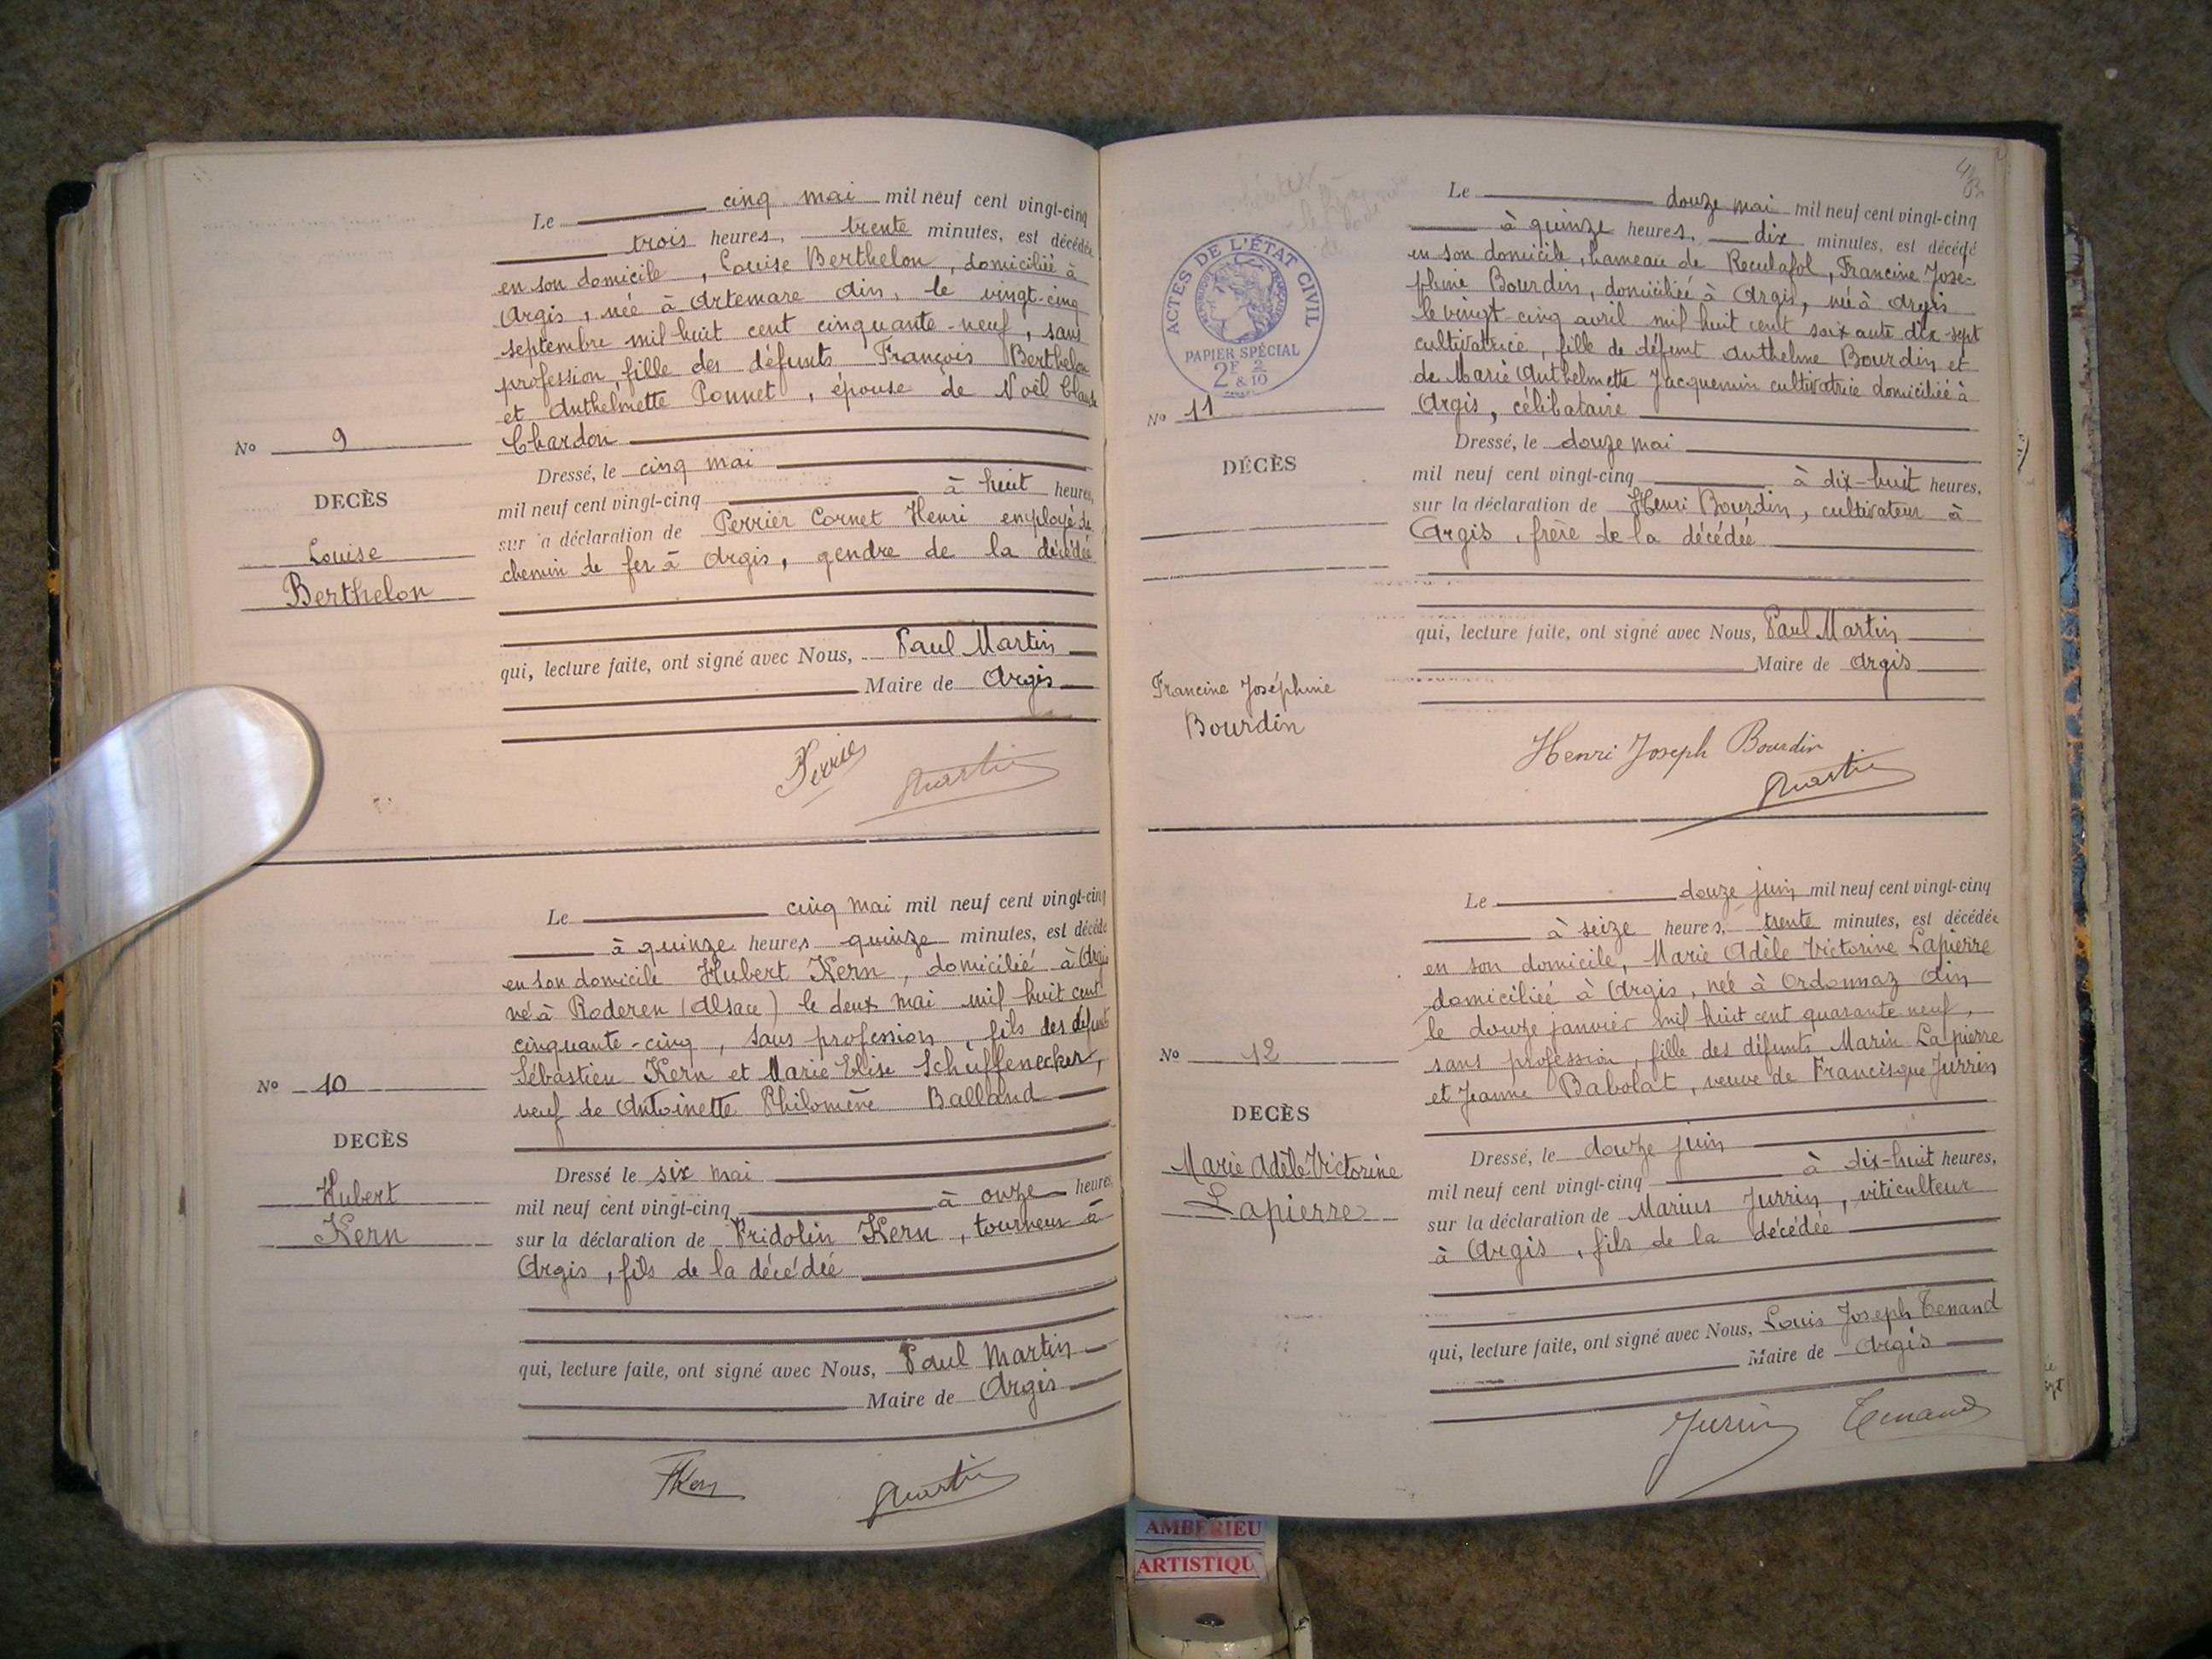 Le cinq mai mil neuf cent vingt-cinq
trois heures, trente minutes, est décédée
en son domicile, Louise Berthelon, domiciliée à
Argis, née à Artemare Ain, le vingt-cinq
septembre mil huit cent cinquante-neuf, sans
profession, fille des défunts François Berthelon
et Anthelmette Ponnet, épouse de Noël Claude
Chardon
Nº 9
DECÈS
Louise
Berthelon
Dressé, le cinq mai
mil neuf cent vingt-cinq à huit heures,
sur la déclaration de Perrier Cornet Henri employé de
chemin de fer à Argis, gendre de la décédée
qui, lecture faite, ont signé avec Nous, Paul Martin
Maire de Argis
Perrier Martin
Le cinq mai mil neuf cent vingt-cinq
à quinze heures quinze minutes, est décédé
en son domicile Hubert Kern, domicilié à Argis
né à Roderen (Alsace) le deux mai mil huit cent
cinquante-cinq, sans profession, fils des défunts
Sébastien Kern et Marie Elise Schuffenecker,
veuf de Antoinette Philomène Balland
Nº 10
DECÈS
Hubert
Kern
Dressé le six mai
mil neuf cent vingt-cinq à onze heures
sur la déclaration de Fridolin Kern, tourneur à
Argis, fils de la décédée
qui, lecture faite, ont signé avec Nous, Paul Martin
Maire de Argis
FKern Martin
ACTES DE L'ÉTAT CIVIL
PAPIER SPÉCIAL
2F 2/10
& 10
Le douze mai mil neuf cent vingt-cinq
à quinze heures, dix minutes, est décédé
en son domicile, hameau de Reculafol, Francine José-
phine Bourdin, domiciliée à Argis, née à Argis
le vingt-cinq avril mil huit cent soixante dix-sept
cultivatrice, fille de défunt Anthelme Bourdin et
de Marie Anthelmette Jacquemin cultivatrice domiciliée à
Argis, célibataire
Nº 11
DÉCÈS
Francine Joséphine
Bourdin
Dressé, le douze mai
mil neuf cent vingt-cinq à dix-huit heures,
sur la déclaration de Henri Bourdin, cultivateur à
Argis, frère de la décédée
qui, lecture faite, ont signé avec Nous, Paul Martin
Maire de Argis
Henri Joseph Bourdin
Martin
Le douze juin mil neuf cent vingt-cinq
à seize heures, trente minutes, est décédée
en son domicile, Marie Adèle Victorine Lapierre
domiciliée à Argis, née à Ordonnaz Ain
le douze janvier mil huit cent quarante neuf,
sans profession, fille des défunts Marin Lapierre
et Jeanne Babolat, veuve de Francisque Jurrin
Nº 12
DECÈS
Marie Adèle Victorine
Lapierre
Dressé, le douze juin
mil neuf cent vingt-cinq à dix-huit heures,
sur la déclaration de Marius Jurrin, viticulteur
à Argis, fils de la décédée
qui, lecture faite, ont signé avec Nous, Louis Joseph Tenand
Maire de Argis
Jurrin Tenand
AMBERIEU
ARTISTIQU